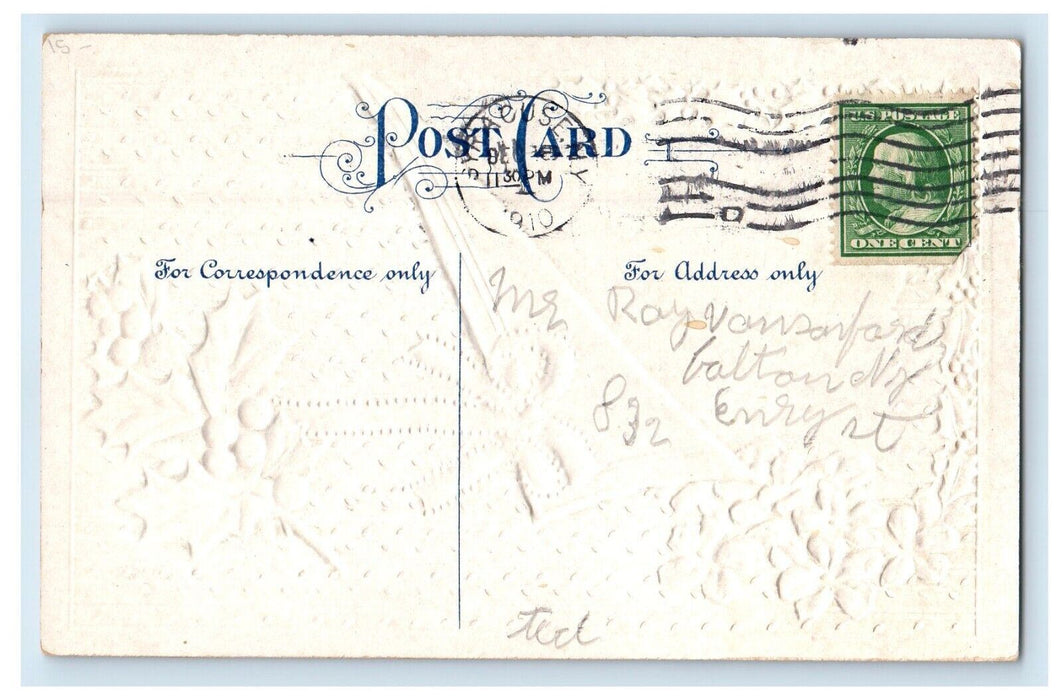 15-
POST CARD
SYRACUSE, N.Y.
DEC
11 30 PM
1910
U.S. POSTAGE
ONE CENT
For Correspondence only
For Address only
Mr Ray Vansanford
Ny
832 Enry st
Ted